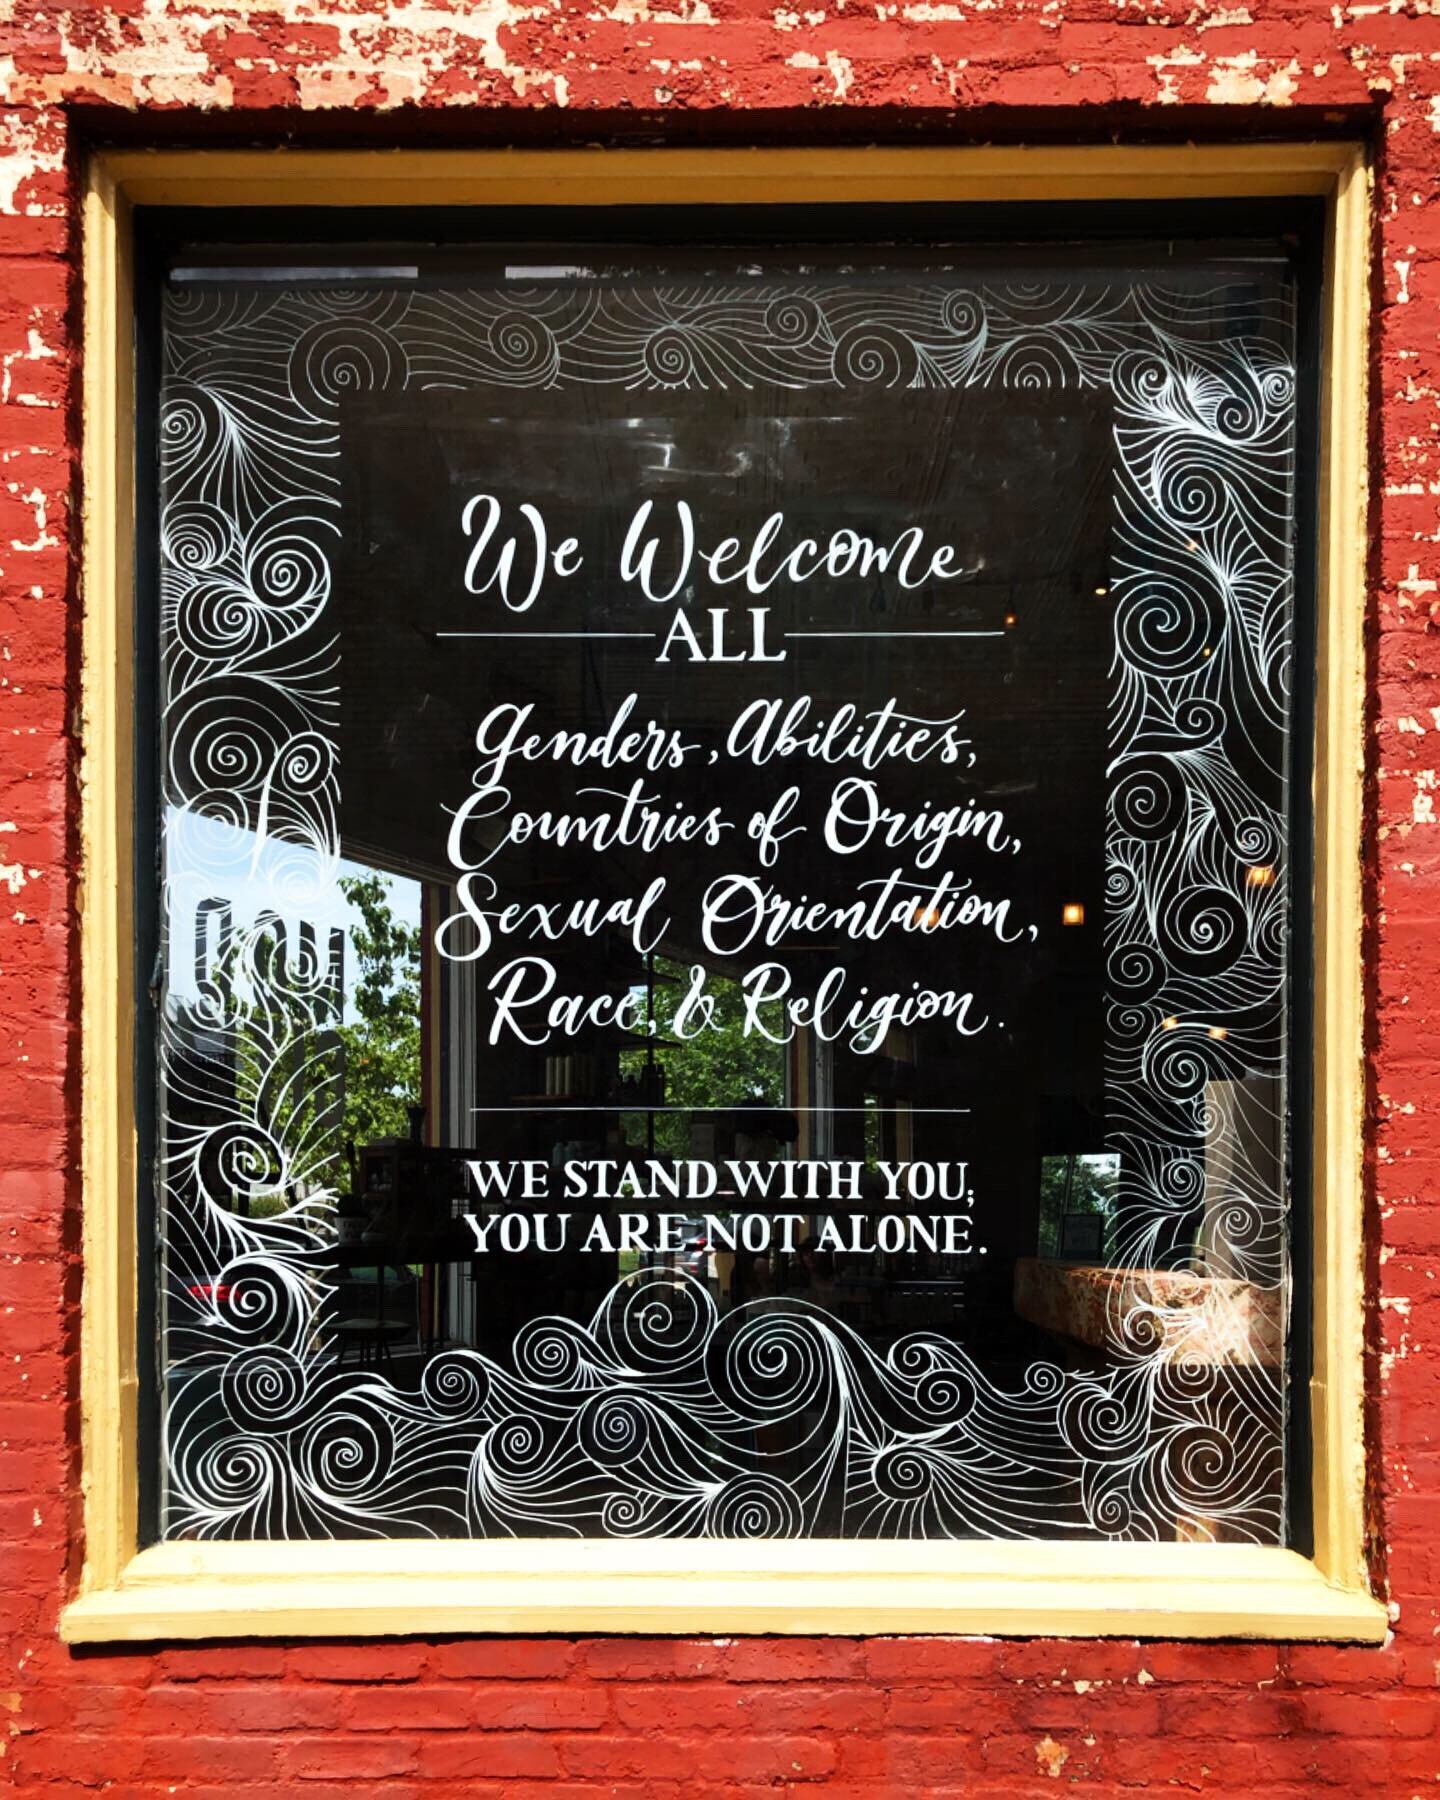 We Welcome
ALL
Genders, Abilities,
Countries of Origin,
Sexual Orientation,
Race, & Religion.
WE STAND WITH YOU;
YOU ARE NOT ALONE.